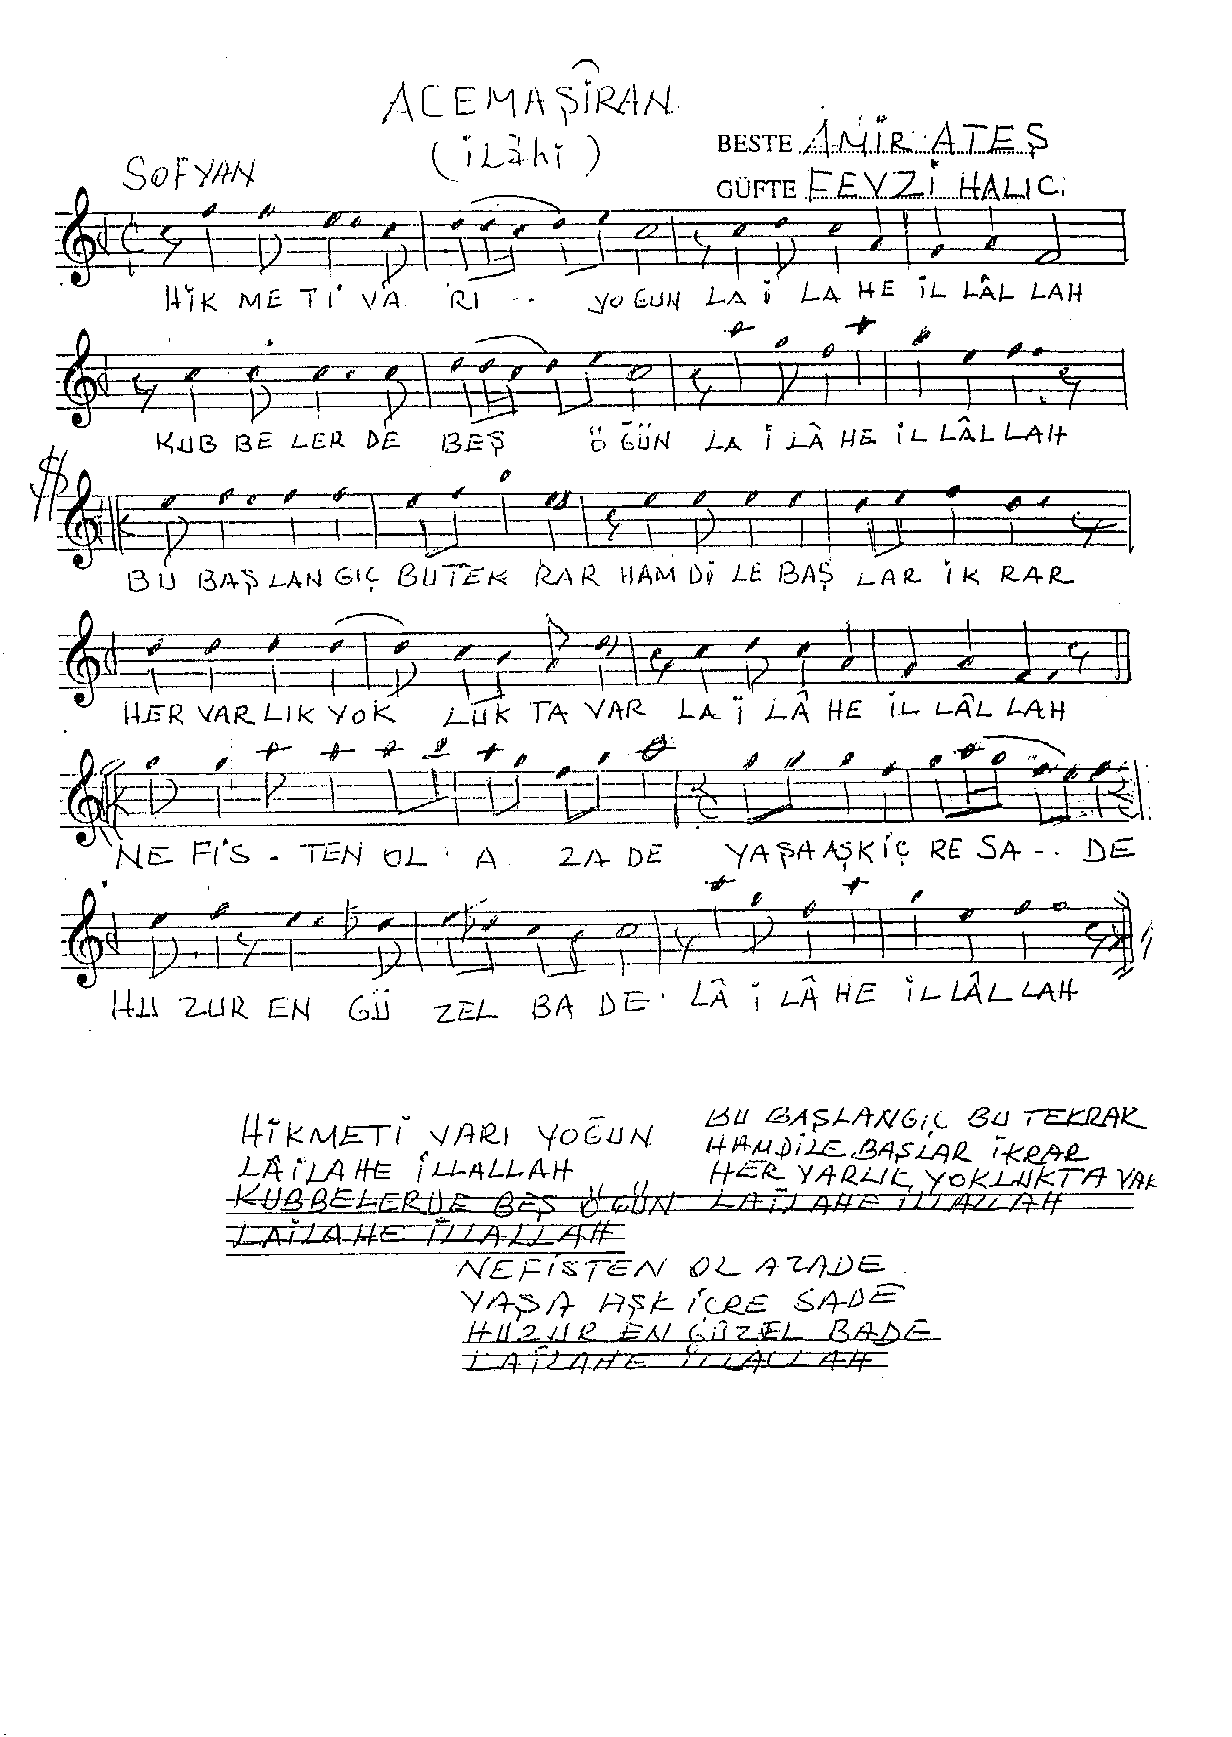 ACEMAŞÎRAN
(iLâhi)
SOFYAN
BESTE AMİR ATEŞ
GÜFTE FEVZİ HALICI
HİK ME Tİ VA RI .. YOGUN LA İ LA HE İL LÂL LAH
KUB BE LER DE BEŞ Ö ĞÜN LA İ LÂ HE İL LÂL LAH
BU BAŞ LAN GIÇ BU TEK RAR HAM Dİ LE BAŞ LAR İK RAR
HER VAR LIK YOK LUK TA VAR LA İ LÂ HE İL LÂL LAH
NE FİS - TEN OL A ZA DE YAŞA AŞK İÇ RE SA -.. DE
HU ZUR EN GÜ ZEL BA DE LÂ İ LÂ HE İL LÂL LAH
HİKMETİ VARI YOĞUN
LÂİLAHE İLLALLAH
KUBBELERDE BEŞ ÖĞÜN
LAİLAHE İLLALLAH
BU BAŞLANGIÇ BU TEKRAR
HAMDİLE BAŞLAR İKRAR
HER VARLIK YOKLUKTA VAR
LAİLAHE İLLALLAH
NEFİSTEN OL AZADE
YAŞA AŞK İÇRE SADE
HUZUR EN GÜZEL BADE
LAİLAHE İLLALLAH